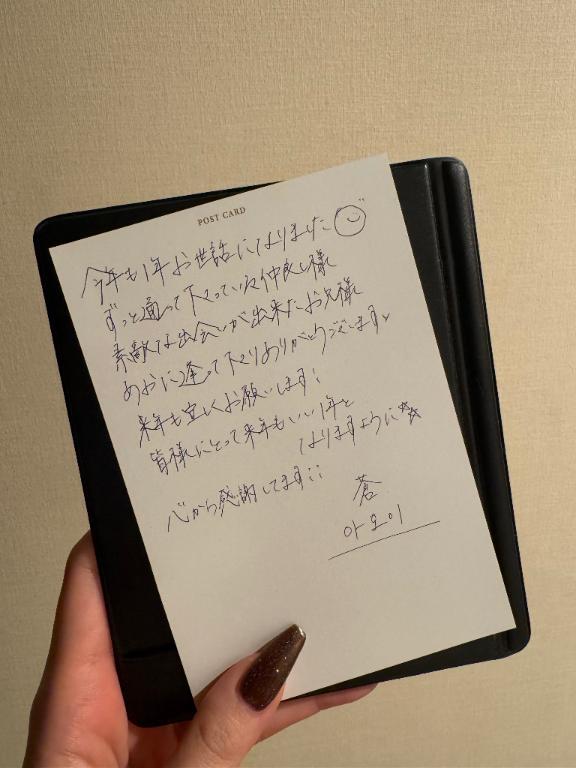 POST CARD
今年も1年お世話になりました
ずっと通って下さっている仲良し様
素敵な出会いが出来たお客様
あおに逢って下さりありがとうございます
来年も宜しくお願いします!
皆様にとって来年もいい1年と
なりますように☆
心から感謝してます!!
蒼
아오이